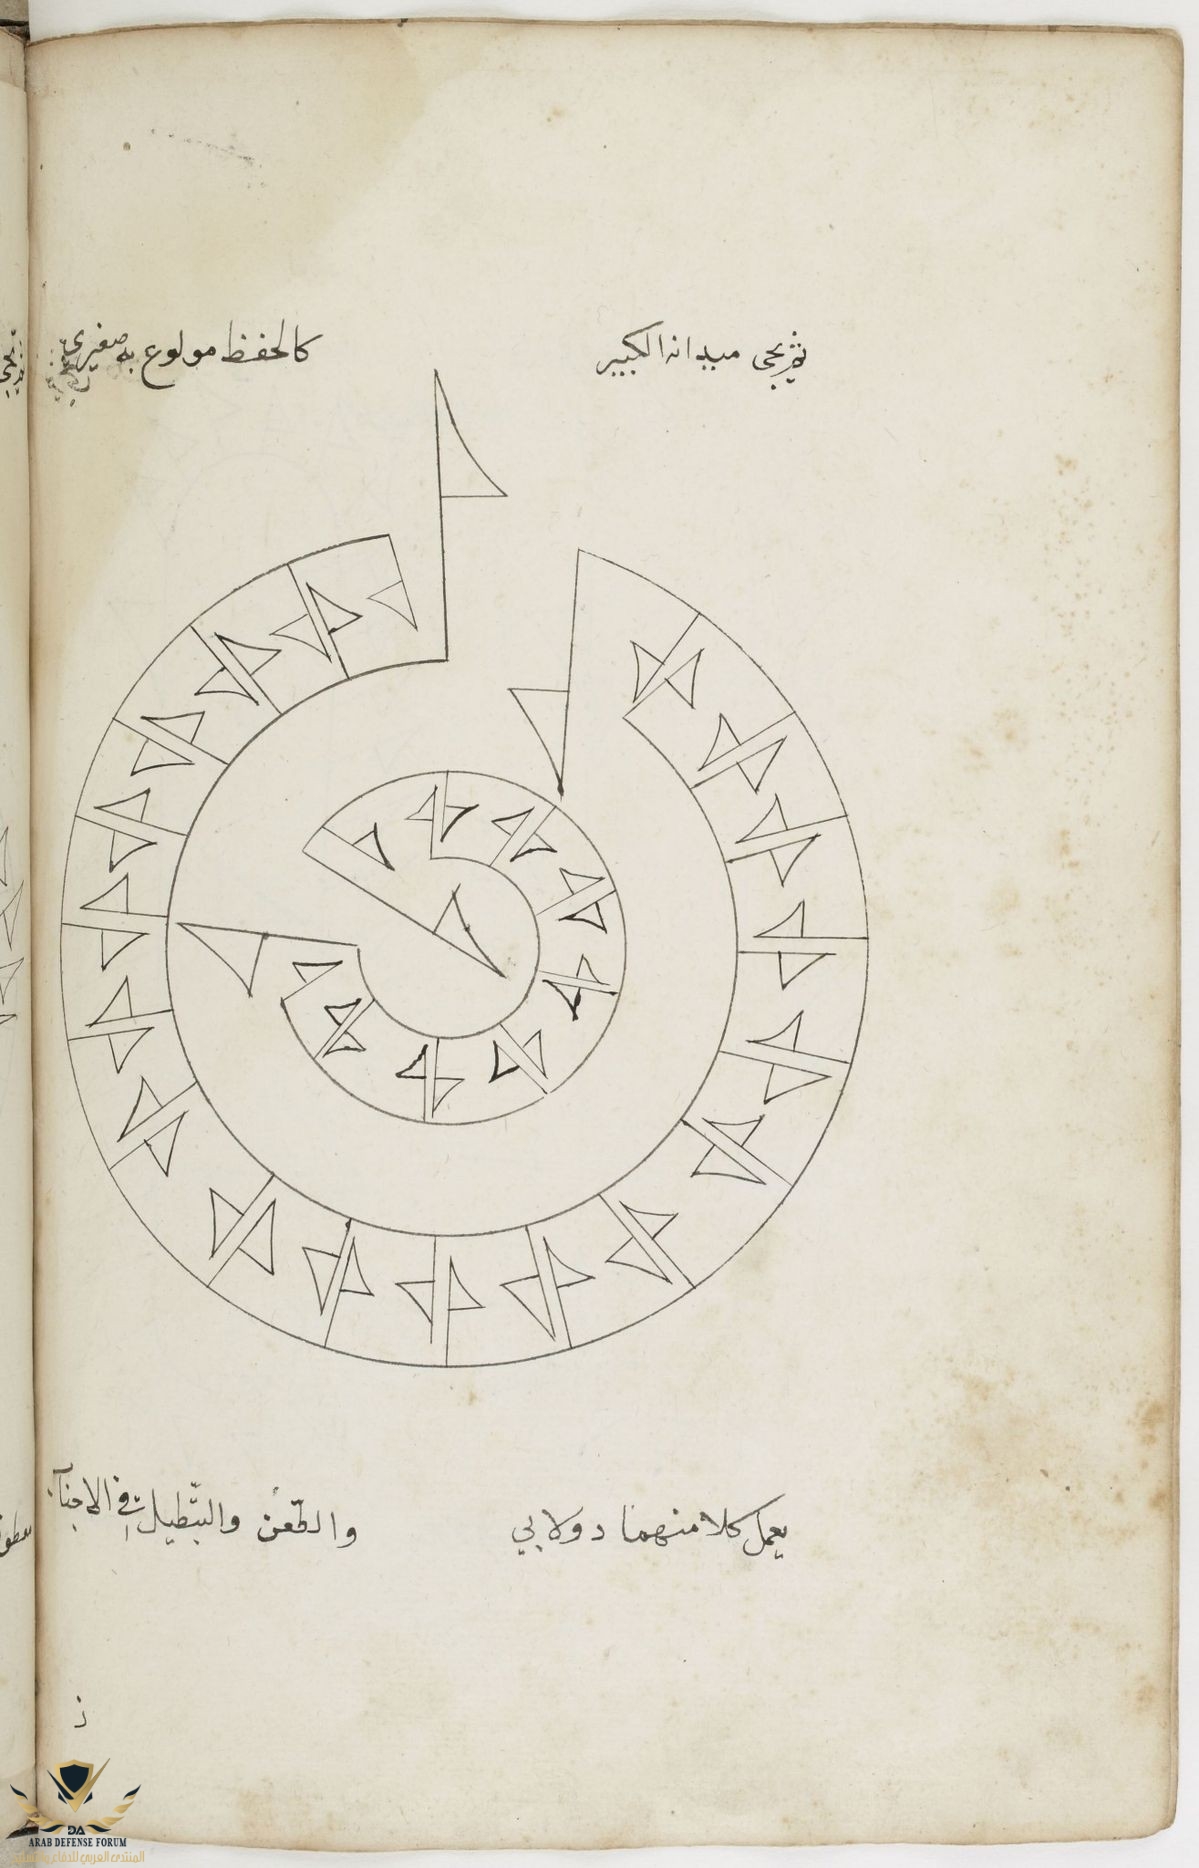 ثم يجى ميدانه الكبير
كالحفظ مولوع به صغيرى
يعمل كلا منهما دولابي
والطعن والتبطيل في الاجناب
ز
DA
ARAB DEFENSE FORUM
المنتدى العربي للدفاع والتسليح